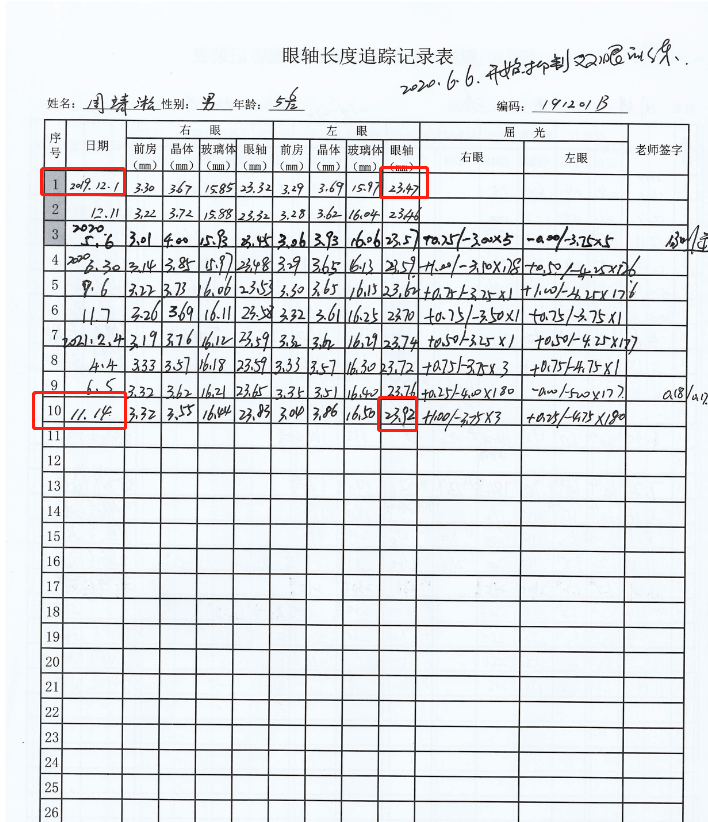 眼轴长度追踪记录表
2020.6.6.开始抑制双眼
姓名: 性别: 男 年龄: 5岁 编码: 191201B
序号 日期 右眼 左眼 屈光 老师签字
前房(mm) 晶体(mm) 玻璃体(mm) 眼轴(mm) 前房(mm) 晶体(mm) 玻璃体(mm) 眼轴(mm) 右眼 左眼
1 2019.12.1 3.30 3.67 15.85 23.32 3.29 3.69 15.97 23.47
2 12.11 3.22 3.72 15.88 23.32 3.28 3.62 16.04 23.46
3 2020 5.6 3.01 4.00 15.93 23.45 3.06 3.93 16.06 23.57 +0.25/-3.00X5 -0.00/-3.75X5
4 2020 6.30 3.14 3.85 15.97 23.48 3.29 3.65 16.13 23.59 +1.00/-3.50X178 +0.50/-4.25X176
5 9.6 3.22 3.73 16.06 23.53 3.30 3.65 16.15 23.62 +0.75/-3.25X1 +1.00/-4.25X176
6 11.7 3.26 3.69 16.11 23.58 3.32 3.61 16.25 23.70 +0.75/-3.50X1 +0.75/-3.75X1
7 2021.2.4 3.19 3.76 16.12 23.59 3.32 3.62 16.29 23.74 +0.50/-3.25X1 +0.50/-4.25X177
8 4.4 3.33 3.57 16.18 23.59 3.33 3.57 16.30 23.72 +0.75/-3.75X3 +0.75/-4.75X1
9 6.5 3.32 3.62 16.21 23.65 3.35 3.51 16.40 23.76 +0.25/-4.00X180 -0.00/-5.00X177
10 11.14 3.32 3.55 16.44 23.83 3.04 3.86 16.50 23.92 +1.00/-3.75X3 +0.25/-4.75X180
11
12
13
14
15
16
17
18
19
20
21
22
23
24
25
26